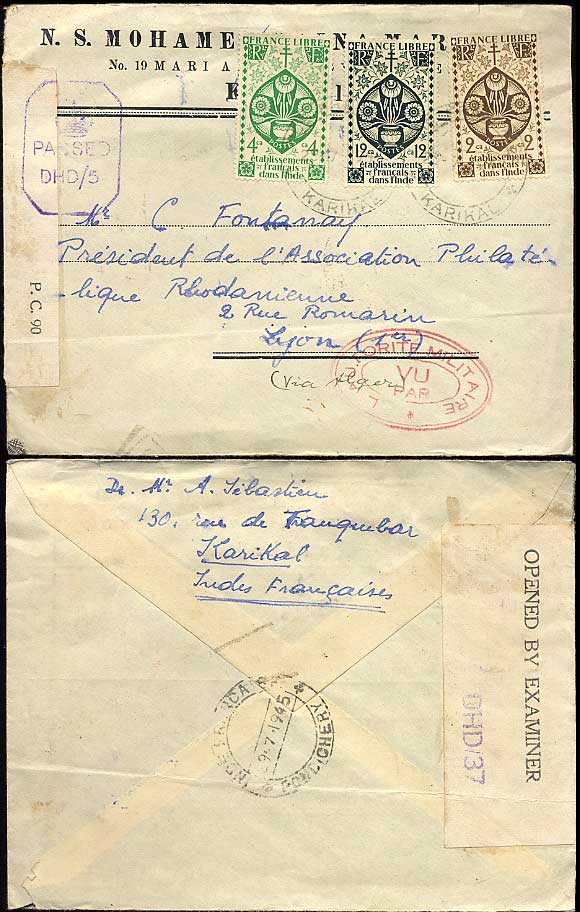 N. S. MOHAME NA MAR
No. 19 MARI A
FRANCE LIBRE
RF
4ca 4
POSTES
établissements
français
dans l'Inde
FRANCE LIBRE
RF
12ca 12
POSTES
établissements
français
dans l'Inde
FRANCE LIBRE
RF
2ca 2
POSTES
établissements
français
dans l'Inde
KARIKAL
KARIKAL
PASSED
DHD/5
P.C. 90
Mr C Fontanay
Président de l'Association Philaté-
-lique Rhodanienne
2 Rue Romarin
Lyon (1er)
(Via Alger)
L'AUTORITE MILITAIRE
VU
PAR
De Mr A. Sébastien
130, rue de Tranquebar
Karikal
Indes Françaises
OPENED BY EXAMINER
DHD/37
PONDICHERY
9-7-1945